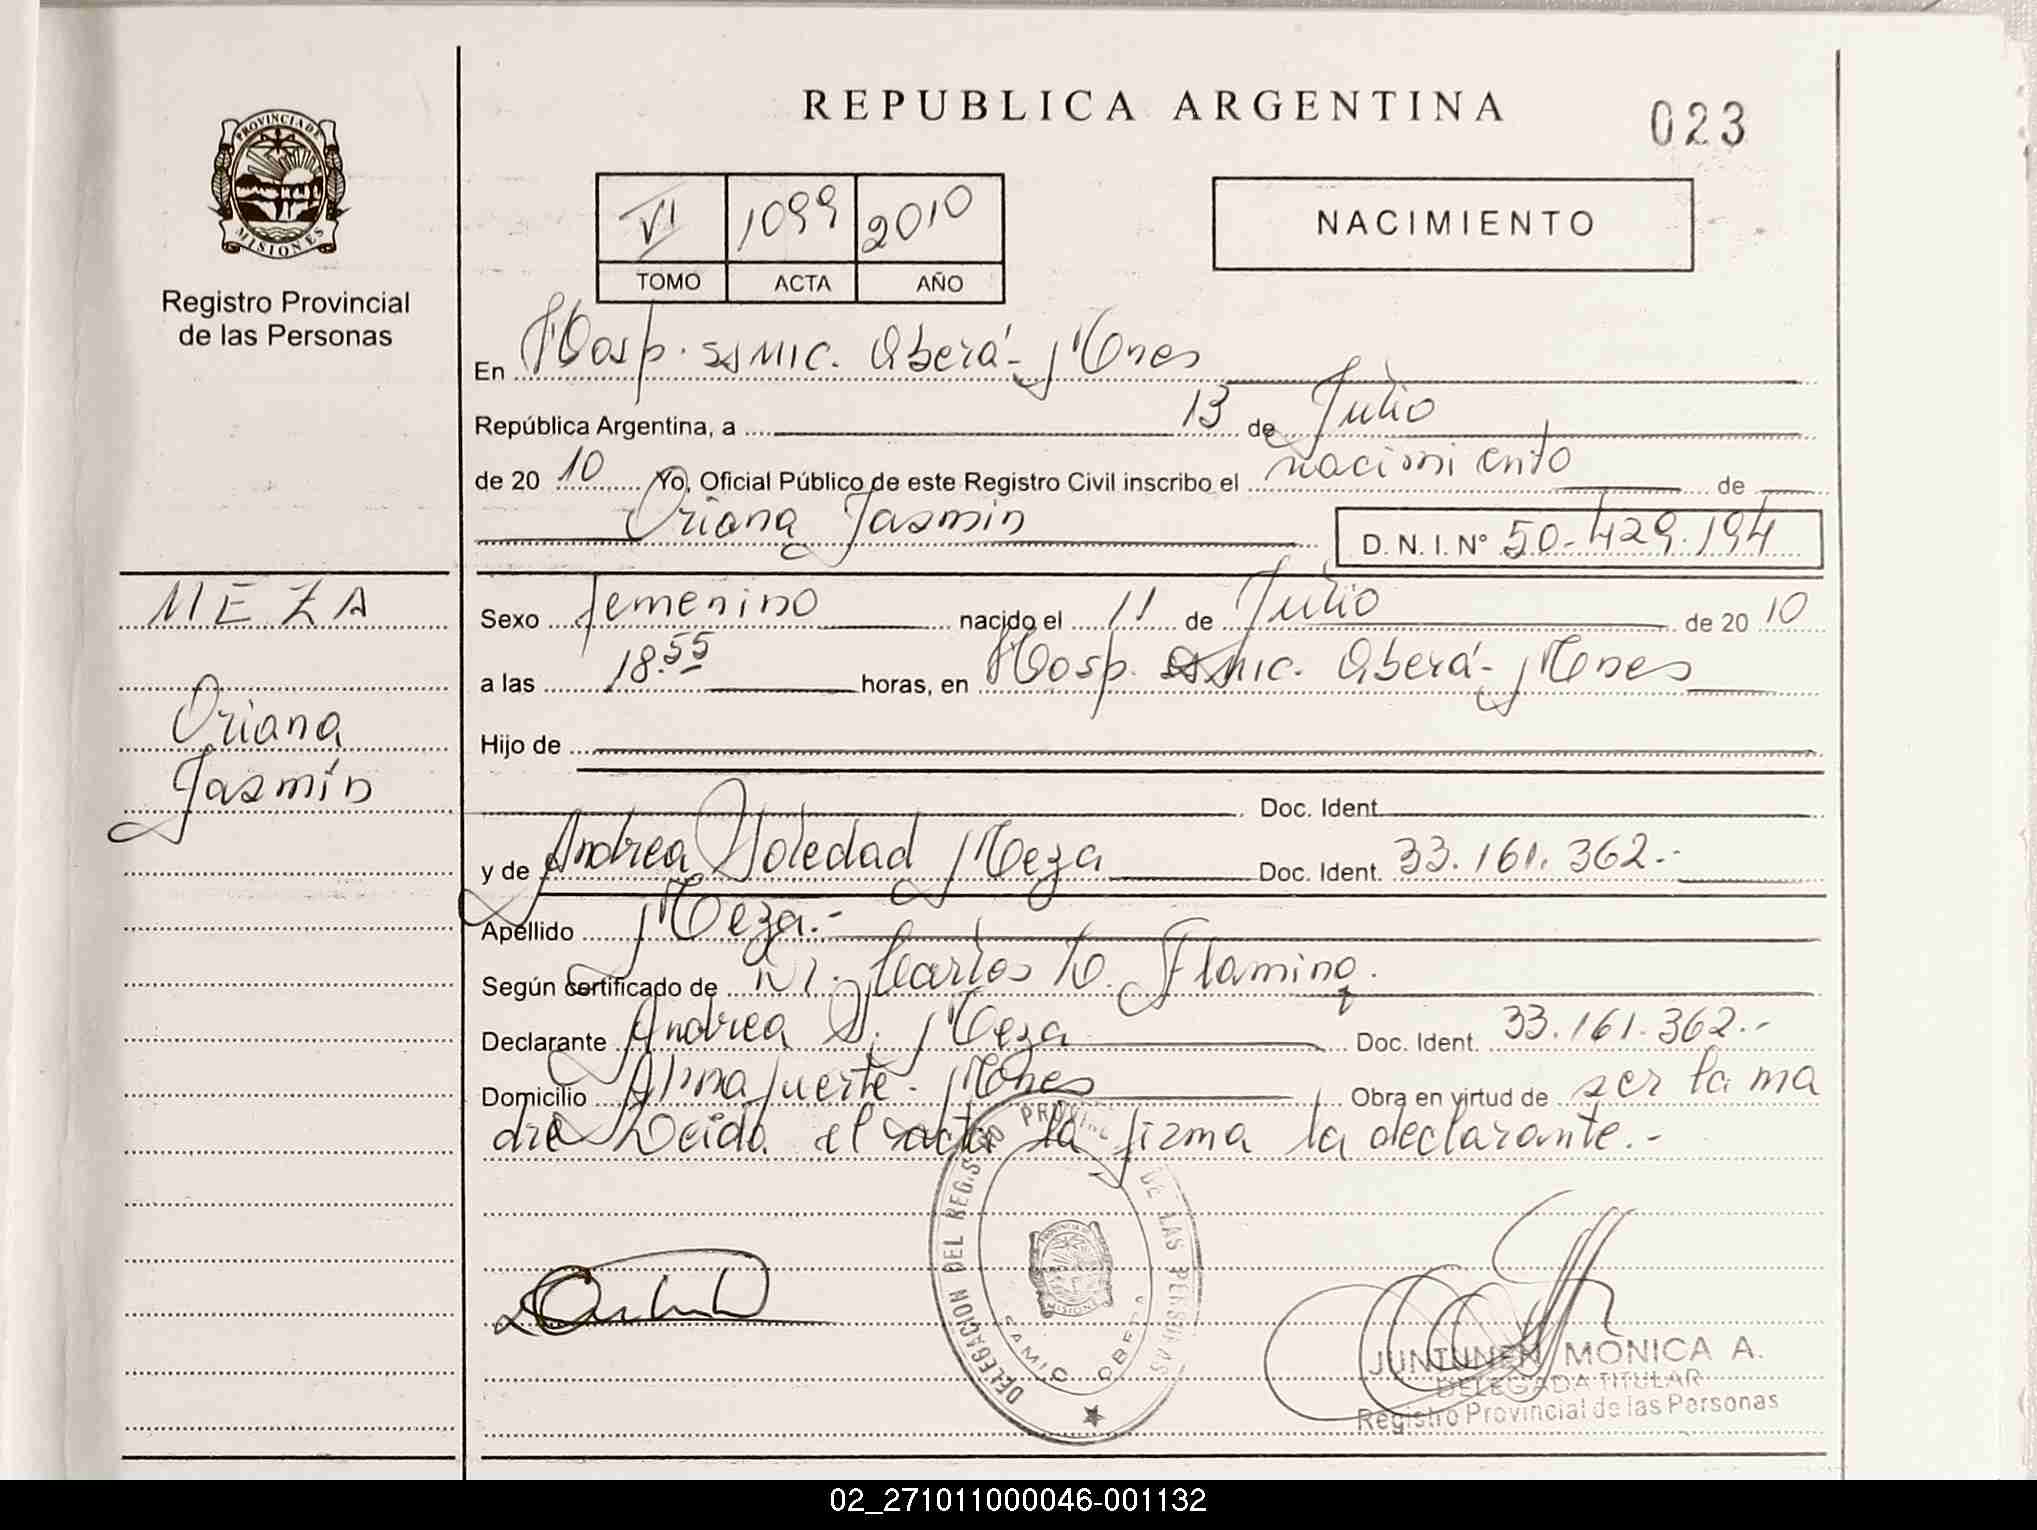 REPUBLICA ARGENTINA
023
PROVINCIA DE
MISIONES
Registro Provincial
de las Personas
VI 1099 2010
TOMO ACTA AÑO
NACIMIENTO
En Hosp. SAMIC. Oberá - Mnes
República Argentina, a 13 de Julio
de 20 10 Yo, Oficial Público de este Registro Civil inscribo el nacimiento de
Oriana Jasmin
D. N. I. N° 50-429.194
MEZA
Oriana
Jasmín
Sexo femenino nacido el 11 de Julio de 20 10
a las 18.55 horas, en Hosp. SAMIC. Oberá - Mnes
Hijo de
Doc. Ident.
y de Andrea Soledad Meza Doc. Ident. 33.161.362.-
Apellido Meza.-
Según certificado de Carlos Flamino.
Declarante Andrea S. Meza Doc. Ident. 33.161.362.-
Domicilio Almafuerte - Mnes Obra en virtud de ser la ma
dre Leida el acta la firma la declarante.-
DELEGACION DEL REGISTRO PROVINC DE LAS PERSONAS
SAMIC OBERA
MISIONES
JUNTUNEN MONICA A.
DELEGADA TITULAR
Registro Provincial de las Personas
02_271011000046-001132